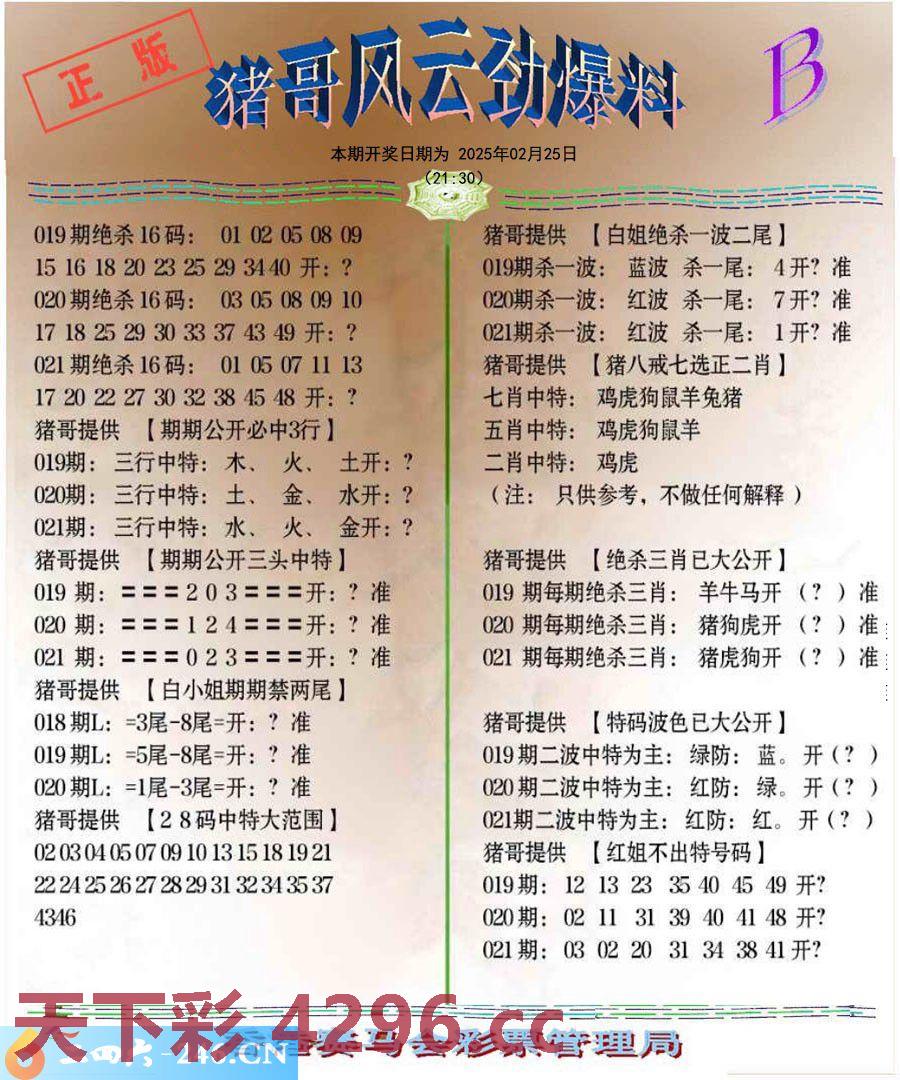 正版
猪哥风云劲爆料
B
本期开奖日期为 2025年02月25日
（21:30）
019期绝杀16码： 01 02 05 08 09
15 16 18 20 23 25 29 34 40 开：？
020期绝杀16码： 03 05 08 09 10
17 18 25 29 30 33 37 43 49 开：？
021期绝杀16码： 01 05 07 11 13
17 20 22 27 30 32 38 45 48 开：？
猪哥提供 【期期公开必中3行】
019期：三行中特：木、 火、 土开：？
020期：三行中特：土、 金、 水开：？
021期：三行中特：水、 火、 金开：？
猪哥提供 【期期公开三头中特】
019 期：===203===开：？准
020 期：===124===开：？准
021 期：===023===开：？准
猪哥提供 【白小姐期期禁两尾】
018期L：=3尾-8尾=开：？准
019期L：=5尾-8尾=开：？准
020期L：=1尾-3尾=开：？准
猪哥提供 【28码中特大范围】
02 03 04 05 07 09 10 13 15 18 19 21
22 24 25 26 27 28 29 31 32 34 35 37
43 46
猪哥提供 【白姐绝杀一波二尾】
019期杀一波： 蓝波 杀一尾： 4开？准
020期杀一波： 红波 杀一尾： 7开？准
021期杀一波： 红波 杀一尾： 1开？准
猪哥提供 【猪八戒七选正二肖】
七肖中特： 鸡虎狗鼠羊兔猪
五肖中特： 鸡虎狗鼠羊
二肖中特： 鸡虎
（注： 只供参考，不做任何解释）
猪哥提供 【绝杀三肖已大公开】
019 期每期绝杀三肖： 羊牛马开（？）准
020 期每期绝杀三肖： 猪狗虎开（？）准
021 期每期绝杀三肖： 猪虎狗开（？）准
猪哥提供 【特码波色已大公开】
019期二波中特为主：绿防：蓝。开（？）
020期二波中特为主：红防：绿。开（？）
021期二波中特为主：红防：红。开（？）
猪哥提供 【红姐不出特号码】
019期： 12 13 23 35 40 45 49 开？
020期： 02 11 31 39 40 41 48 开？
021期： 03 02 20 31 34 38 41 开？
天下彩 4296.cc
二四六-246.CN
马会彩票管理局